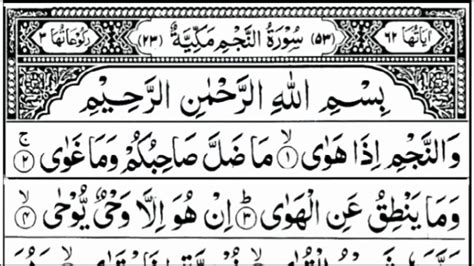 اٰيَاتُهَا ٦٢ (٥٣) سُوْرَةُ النَّجْمِ مَكِّيَّةٌ (٢٣) رُكُوْعَاتُهَا ٣
بِسْمِ اللهِ الرَّحْمٰنِ الرَّحِيْمِ
وَالنَّجْمِ اِذَا هَوٰى ۙ﴿١﴾ مَا ضَلَّ صَاحِبُكُمْ وَمَا غَوٰى ۚ﴿٢﴾
وَمَا يَنْطِقُ عَنِ الْهَوٰى ﴿٣﴾ اِنْ هُوَ اِلَّا وَحْيٌ يُّوْحٰى ۙ﴿٤﴾